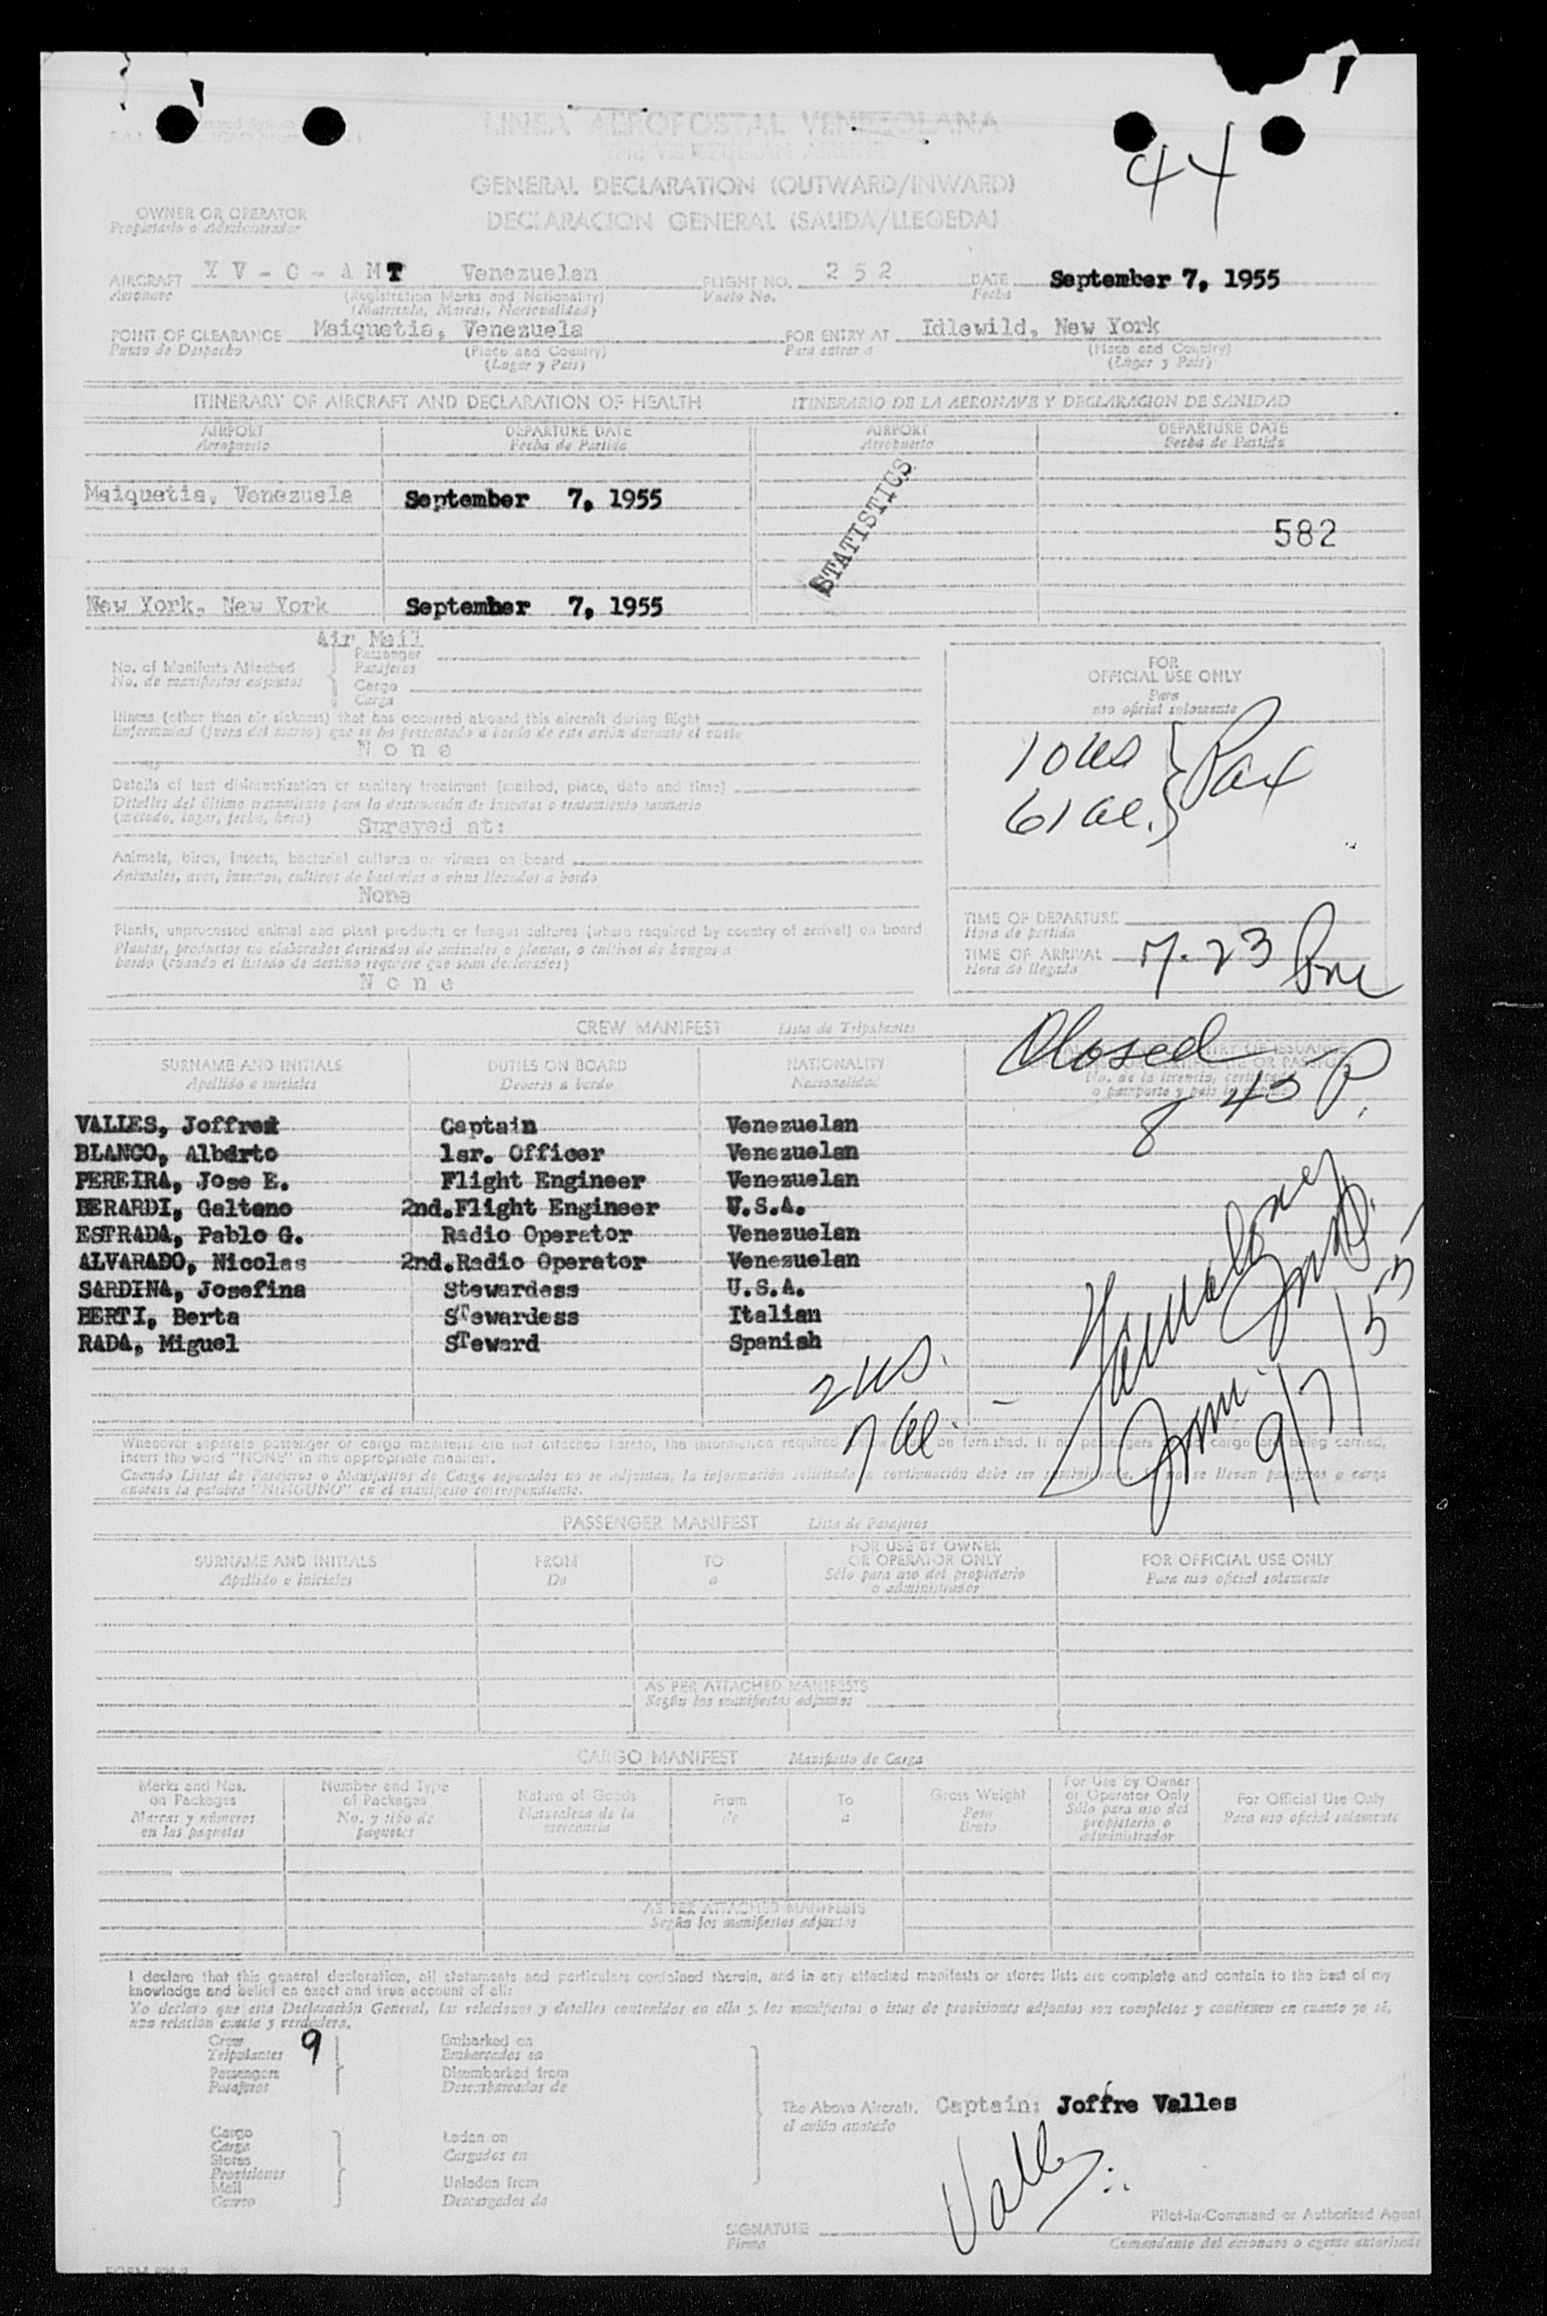 LINEA AEROPOSTAL VENEZOLANA
THE VENEZUELAN AIRLINE
44
GENERAL DECLARATION (OUTWARD/INWARD)
DECLARACION GENERAL (SALIDA/LLEGEDA)
OWNER OR OPERATOR
Propietario o Administrador
AIRCRAFT Y V - C - A M T Venezuelan FLIGHT NO. 2 5 2 DATE September 7, 1955
Aeronave (Registration Marks and Nationality) Vuelo No. Fecha
(Matricula, Marcas, Nacionalidad)
POINT OF CLEARANCE Maiquetia, Venezuela FOR ENTRY AT Idlewild, New York
Punto de Despacho (Place and Country) Para entrar a (Place and Country)
(Lugar y Pais) (Lugar y Pais)
ITINERARY OF AIRCRAFT AND DECLARATION OF HEALTH ITINERARIO DE LA AERONAVE Y DECLARACION DE SANIDAD
AIRPORT DEPARTURE DATE AIRPORT DEPARTURE DATE
Aeropuerto Fecha de Partida Aeropuerto Fecha de Partida
Maiquetia, Venezuela September 7, 1955
STATISTICS
582
New York, New York September 7, 1955
Air Mail
No. of Manifests Attached Passenger
No. de manifiestos adjuntos Pasajeros
Cargo
Carga
FOR
OFFICIAL USE ONLY
Para
uso oficial solamente
Illness (other than air sickness) that has occurred aboard this aircraft during flight
Enfermedad (fuera del mareo) que se ha presentado a bordo de este avión durante el vuelo
N o n e
10 US
61 al. } Pax
Details of last disinsectization or sanitary treatment (method, place, date and time)
Detalles del último tratamiento para la destrucción de insectos o tratamiento sanitario
(método, lugar, fecha, hora) Sprayed at:
Animals, birds, insects, bacterial cultures or viruses on board
Animales, aves, insectos, cultivos de bacterias o virus llevados a bordo
None
Plants, unprocessed animal and plant products or fungus cultures (where required by country of arrival) on board
Plantas, productos no elaborados derivados de animales o plantas, o cultivos de hongos a
bordo (cuando el Estado de destino requiere que sean declarados)
N o n e
TIME OF DEPARTURE
Hora de partida
TIME OF ARRIVAL 7.23 Pm
Hora de llegada
Closed
8 45 P.
CREW MANIFEST Lista de Tripulantes
SURNAME AND INITIALS DUTIES ON BOARD NATIONALITY
Apellido e iniciales Deberes a bordo Nacionalidad
VALLES, Joffre Captain Venezuelan
BLANCO, Alberto 1er. Officer Venezuelan
PEREIRA, Jose E. Flight Engineer Venezuelan
BERARDI, Gaetano 2nd.Flight Engineer U.S.A.
ESTRADA, Pablo G. Radio Operator Venezuelan
ALVARADO, Nicolas 2nd.Radio Operator Venezuelan
SARDINA, Josefina Stewardess U.S.A.
BERTI, Berta Stewardess Italian
RADA, Miguel Steward Spanish
2 US.
7 al.
9/7/55
Whenever separate passenger or cargo manifests are not attached hereto, the information required be furnished. If no passengers cargo are being carried,
insert the word "NONE" in the appropriate manifest.
Cuando Listas de Pasajeros o Manifiestos de Carga separados no se adjuntan, la información solicitada a continuación debe ser suministrada. Si no se llevan pasajeros o carga
anótese la palabra "NINGUNO" en el manifiesto correspondiente.
PASSENGER MANIFEST Lista de Pasajeros
SURNAME AND INITIALS FROM TO FOR USE BY OWNER OR OPERATOR ONLY FOR OFFICIAL USE ONLY
Apellido e iniciales De a Sólo para uso del propietario o administrador Para uso oficial solamente
AS PER ATTACHED MANIFESTS
Según los manifiestos adjuntos
CARGO MANIFEST Manifiesto de Carga
Marks and Nos. on Packages Number and Type of Packages Nature of Goods From To Gross Weight For Use by Owner or Operator Only For Official Use Only
Marcas y números en los paquetes No. y tipo de paquetes Naturaleza de la mercancía de a Peso Bruto Sólo para uso del propietario o administrador Para uso oficial solamente
AS PER ATTACHED MANIFESTS
Según los manifiestos adjuntos
I declare that this general declaration, all statements and particulars contained therein, and in any attached manifests or stores lists are complete and contain to the best of my
knowledge and belief an exact and true account of all:
Yo declaro que esta Declaración General, las relaciones y detalles contenidos en ella y los manifiestos o listas de provisiones adjuntos son completos y contienen en cuanto yo sé,
una relación exacta y verdadera.
Crew 9 Embarked on
Tripulantes Embarcados en
Passengers Disembarked from
Pasajeros Desembarcados de
The Above Aircraft. Captain: Joffre Valles
el avión anotado
Cargo Laden on
Carga Cargados en
Stores
Provisiones
Mail Unladen from
Correo Descargados de
Valles
Pilot-in-Command or Authorized Agent
SIGNATURE
Firma Comandante del aeronave o agente autorizado